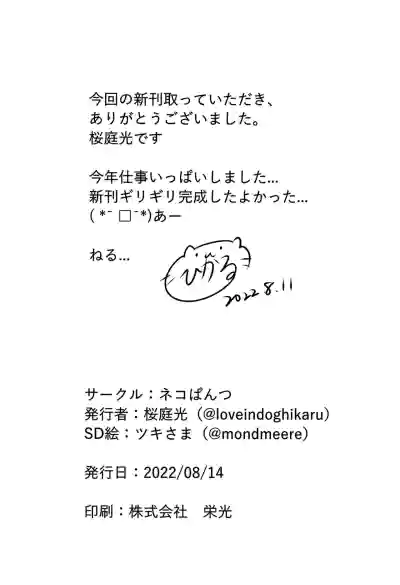 今回の新刊取っていただき、
ありがとうございました。
桜庭光です
今年仕事いっぱいしました...
新刊ギリギリ完成したよかった...
( *¯ □¯*)あー
ねる...
ひかる
2022 8.11
サークル：ネコぱんつ
発行者：桜庭光（@loveindoghikaru）
SD絵：ツキさま（@mondmeere）
発行日：2022/08/14
印刷：株式会社　栄光